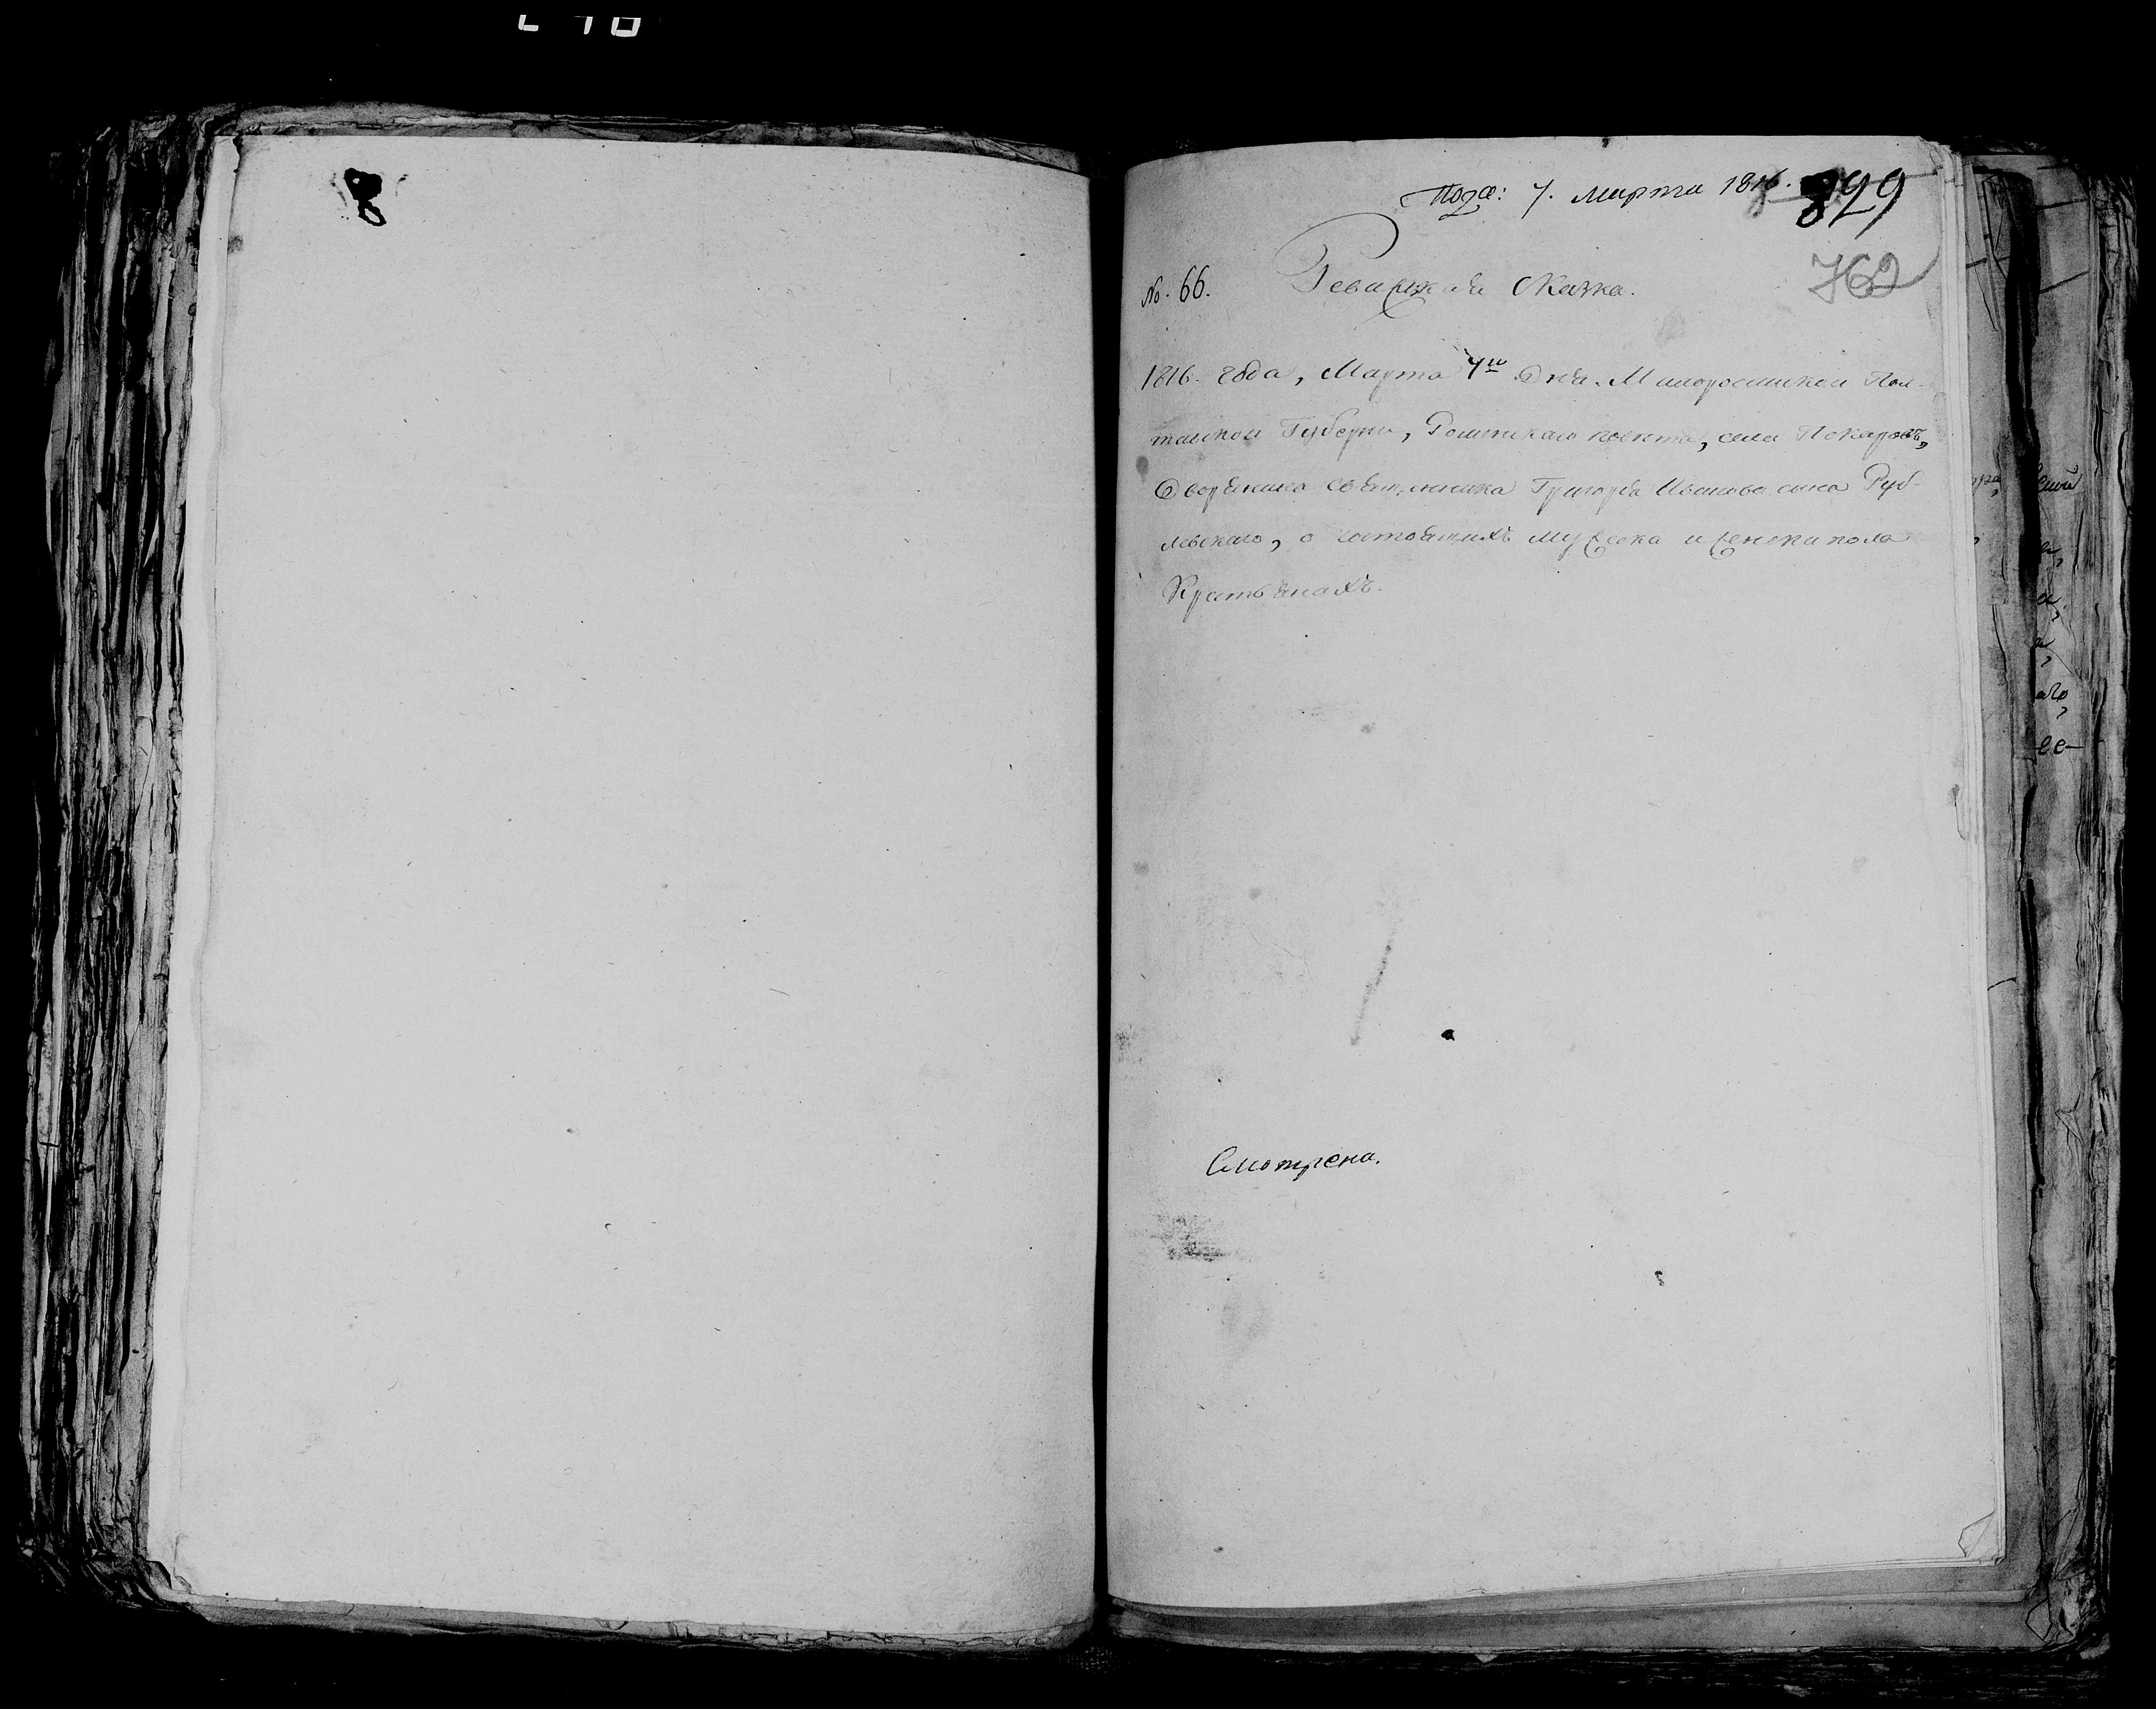 Пода: 7. марта 1816.
829
762
No. 66. Ревижская Сказка.
1816. года, Марта 7го Дня. Малоросийской Пол-
тавской Губерни, Роменского повета, села
Дворянина священника Григория Иванова сина Руб-
левского, о состоящихъ мужеска и женска пола
Крстьянахъ.
Смотрена.